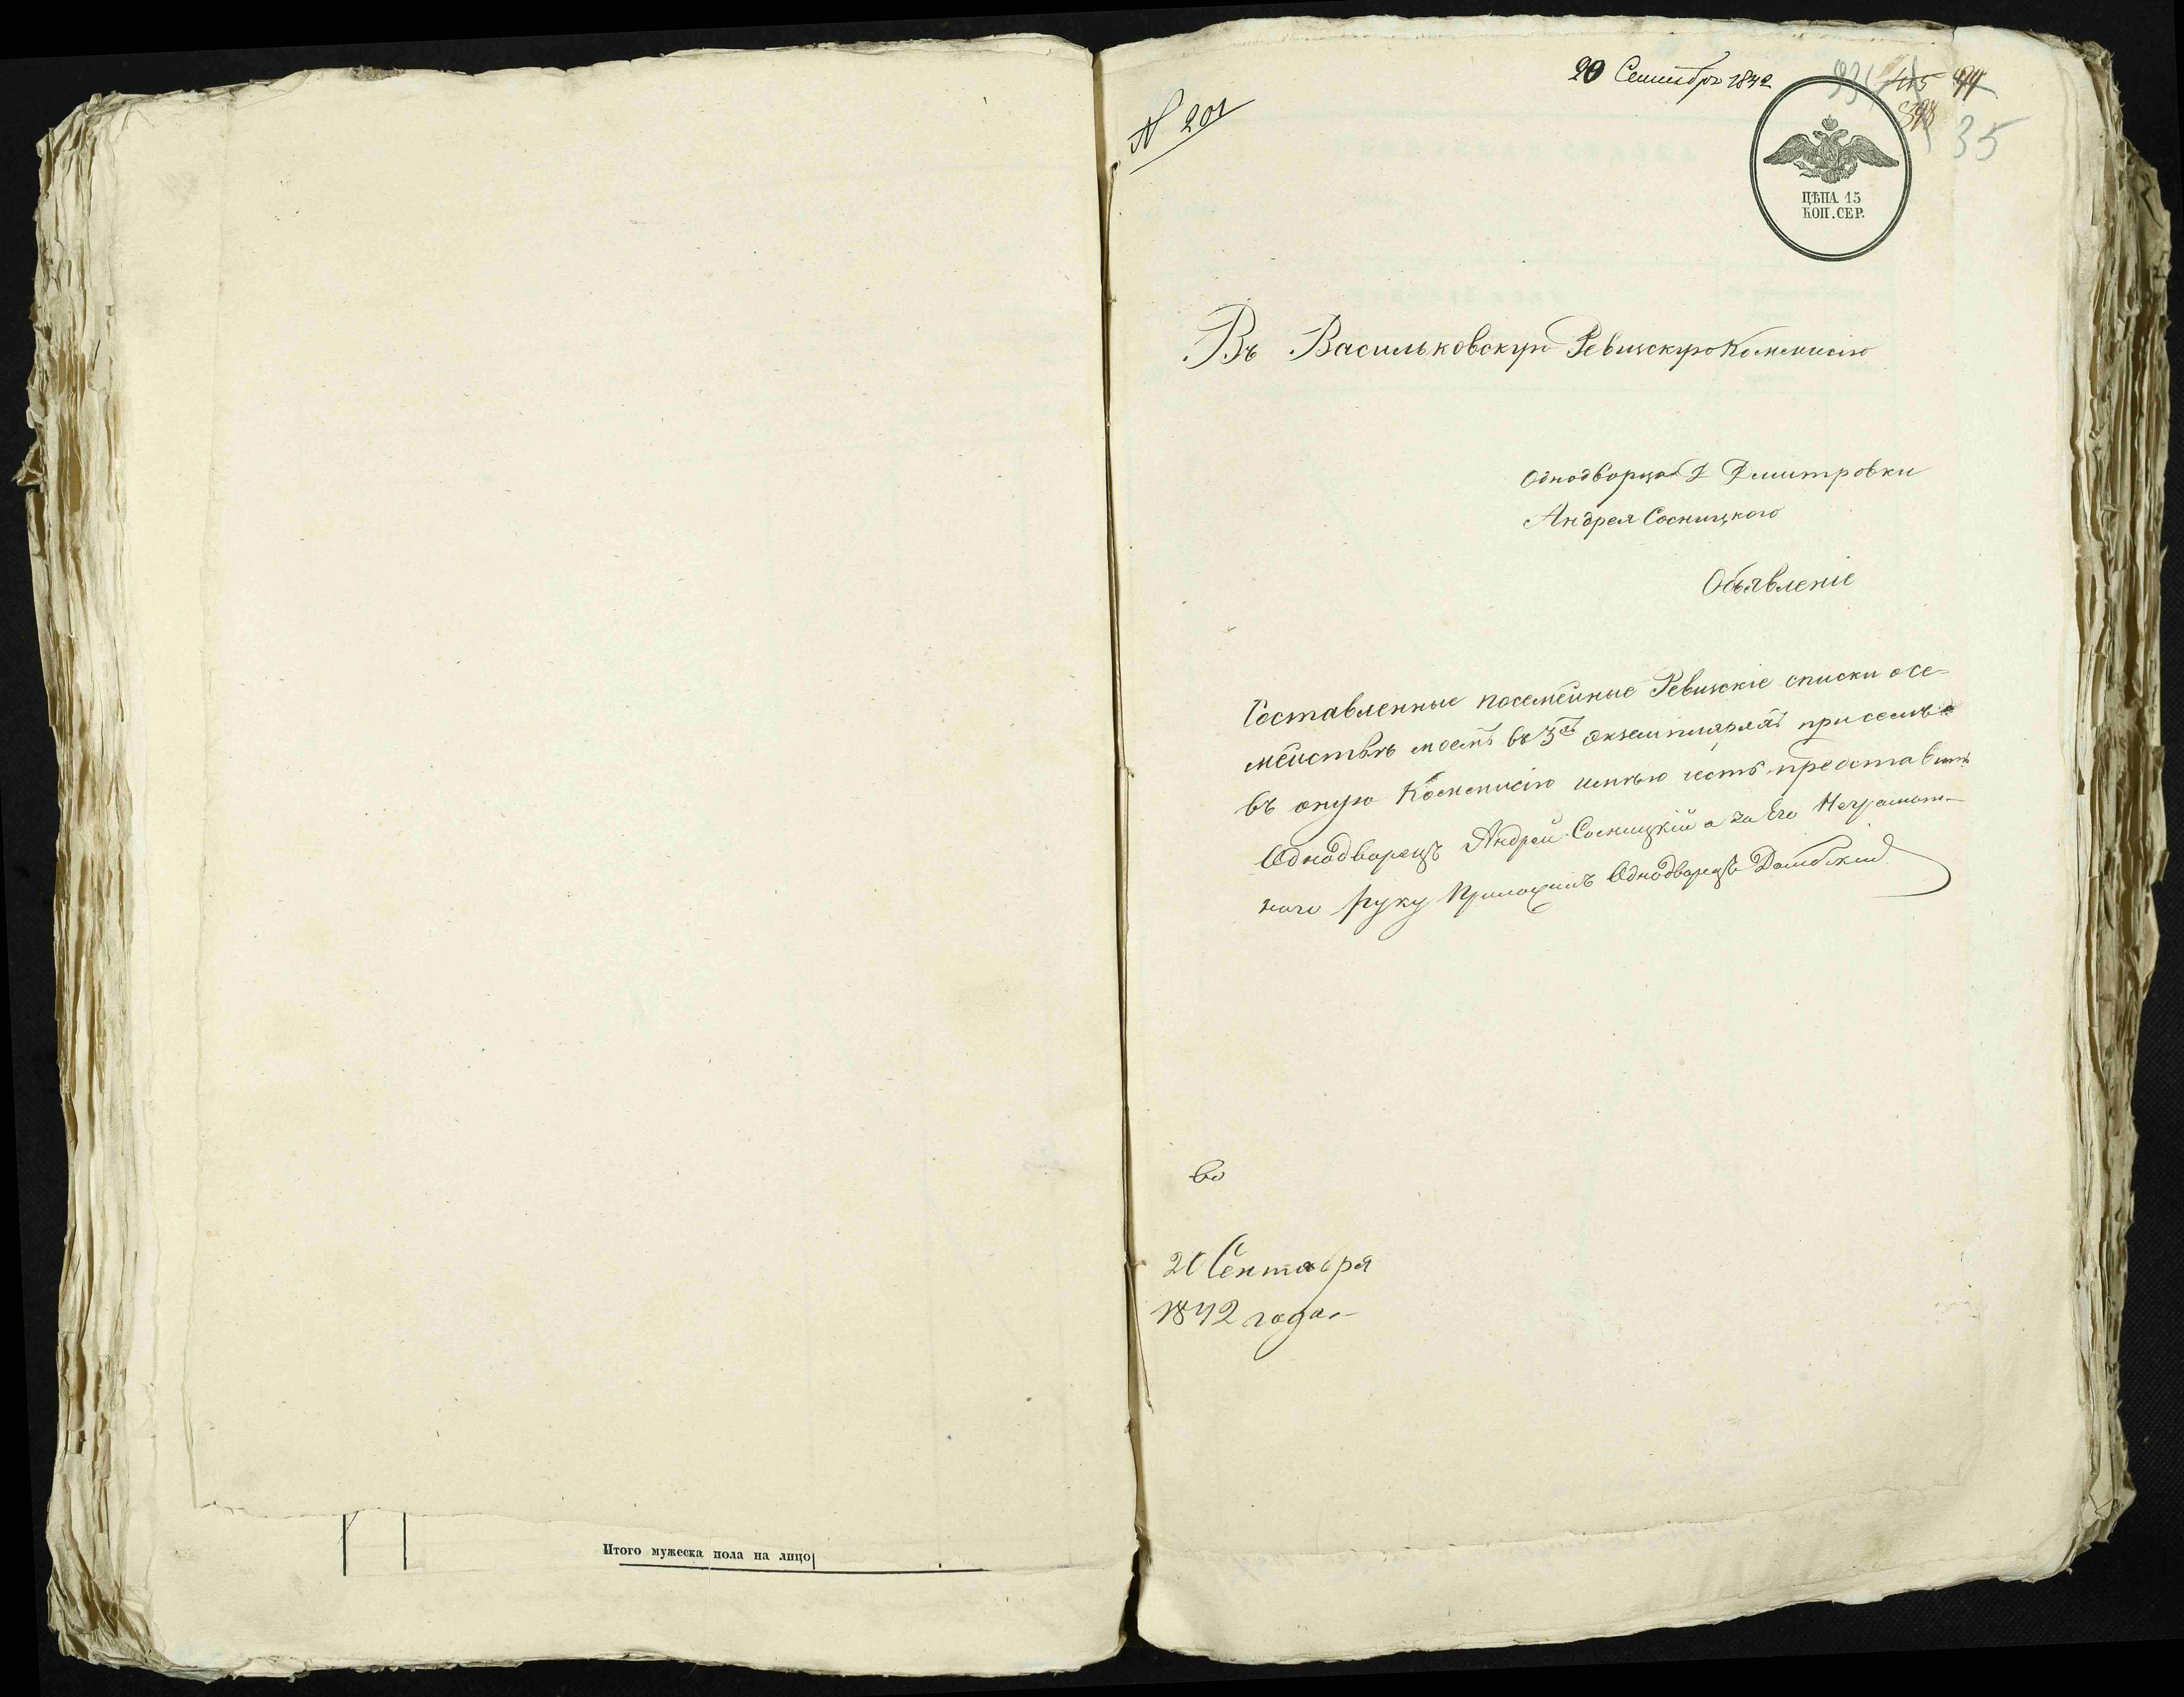 Итого мужеска пола на лицо
20 Сентября 1842
№ 201
475
398
35
ЦѢНА 15
КОП. СЕР.
Въ Васильковскую Ревизскую Коммисію
Однодворца Дмитровки
Андрея Сосницкого
Объявленіе
Составленные посемейные Ревизскіе списки о се-
мействѣ моемъ въ 3хъ экземплярахъ при семъ
въ оную Коммисію имѣю честь представить
Однодворецъ Андрей Сосницкій а за Его Неграмот-
ного руку Приложилъ Однодворецъ Домбскій
во
20 Сентября
1842 года